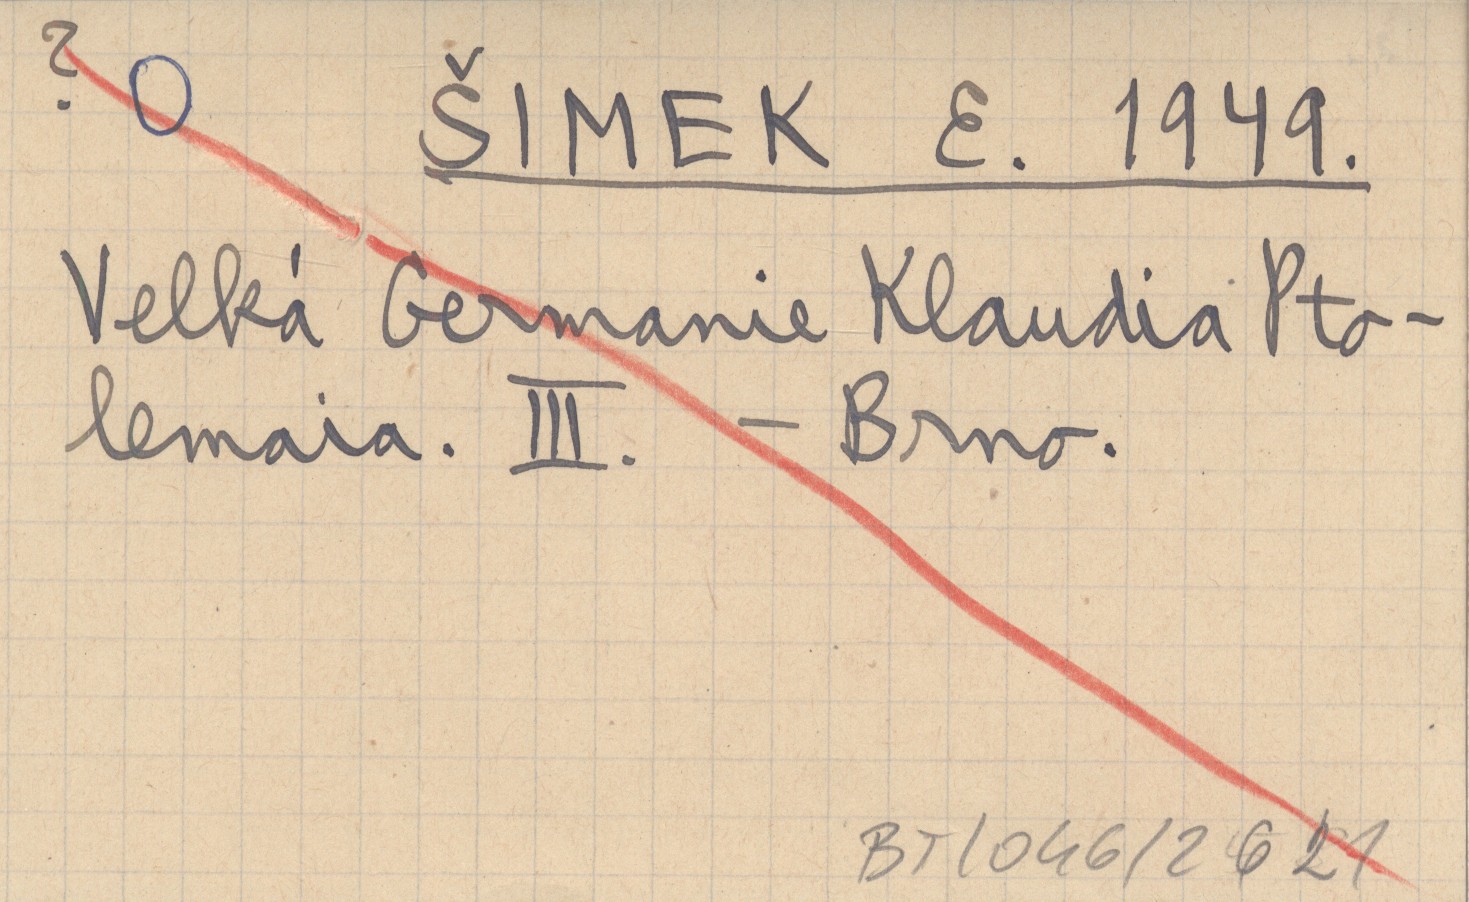 ? O
ŠIMEK E. 1949.
Velká Germanie Klaudia Pto-
lemaia. III. - Brno.
BT/046/2621